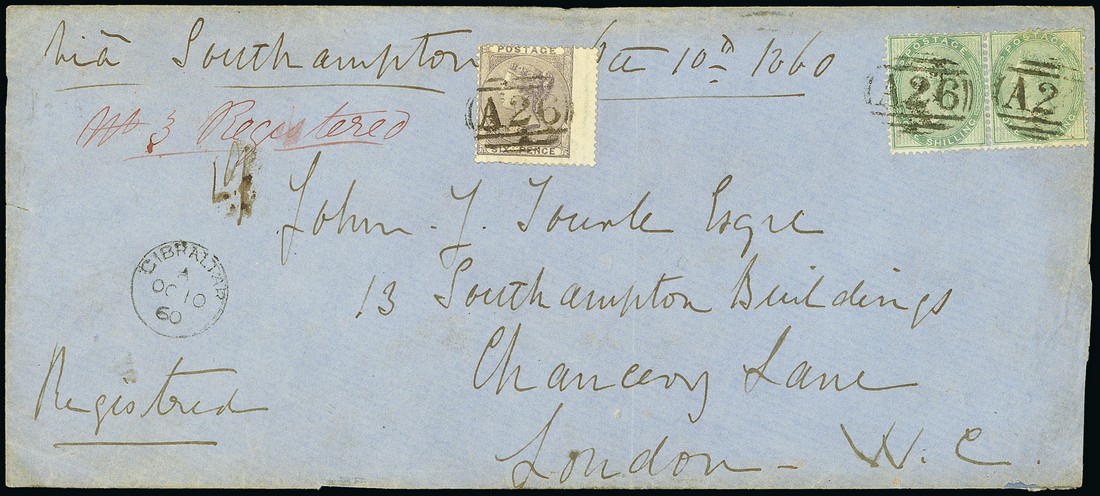 Viâ Southampton 10th 1860
No 3 Registered
POSTAGE
A26
SIX PENCE
POSTAGE
A26
SHILLING
POSTAGE
A2
SHILLING
John J. Tourle Esqre
13 Southampton Buildings
Chancery Lane
London - W. C.
GIBRALTAR
A
OC 10
60
Registered